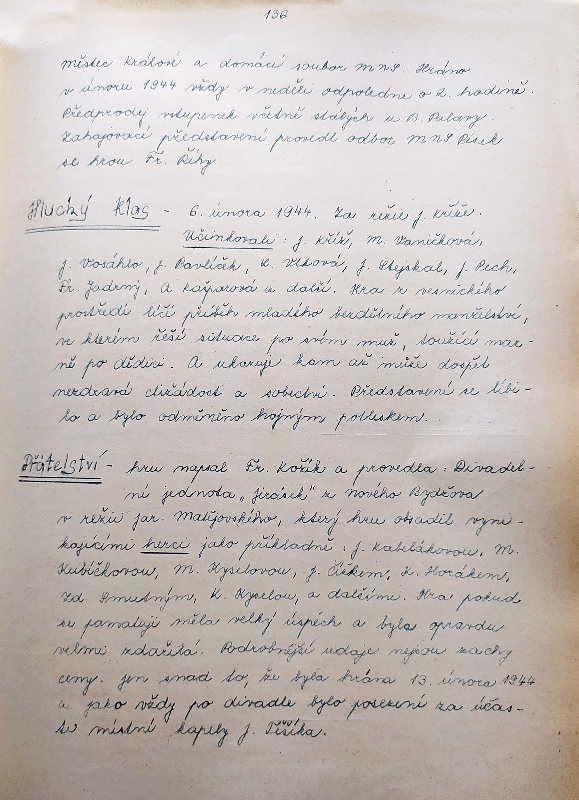 136
městec Králové a domácí soubor MNS. Hráno
v únoru 1944 vždy v neděli odpoledne o 2. hodině.
Předprodej vstupenek včetně stálých u B. Palavy.
Zahajovací představení provedl odbor MNS Písek
se hrou Fr. Říhy
Hluchý Klas - 6. února 1944. Za režie J. Kříže.
Účinkovali: J. Kříž, M. Vaníčková,
J. Vosáhlo, J. Pavlíček, K. Vlková, J. Stejskal, J. Pech,
Fr. Jadrný, A Kašparová a další. Hra z vesnického
prostředí líčí příběh mladého bezdětného manželství,
ve kterém řeší situace po svém muž, toužící mar-
ně po dědici. A ukazuje kam až může dospět
nezdravá ctižádost a sobectví. Představení se líbi-
lo a bylo odměněno hojným potleskem.
Přátelství - hru napsal Fr. Kožík a provedla: Divadel-
ní jednota „Jirásek" z nového Bydžova
v režii Jar. Matějovského, který hru obsadil vyni-
kajícími herci jako příkladně: J. Kabelákovou, M.
Kubíčkovou, M. Kyselovou, J. Čížkem, K. Horákem,
Zd. Smutným, K. Kyselou, a dalšími. Hra pokud
se pamatuji měla velký úspěch a byla opravdu
velmi zdařilá. Podrobnější údaje nejsou zachy
ceny. jen snad to, že byla hrána 13. února 1944
a jako vždy po divadle bylo posezení za účas-
ti místní kapely J. Těšíka.